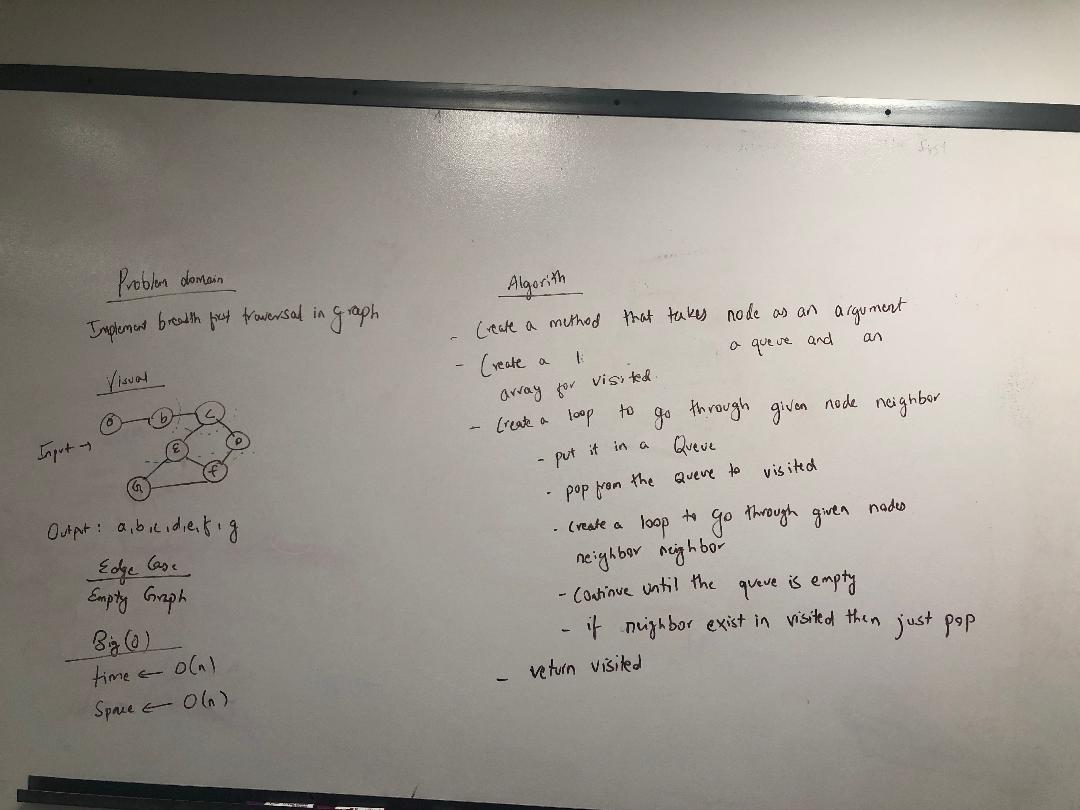 Problem domain
Implement breadth first traversal in graph
Visual
a b c
Input →
E D
f
G
Output : a, b, c, d, e, f, g
Edge Case
Empty Graph
Big(O)
time ← O(n)
Space ← O(n)
Algorith
- Create a method that takes node as an argument
- Create a li a queue and an
array for visited.
- Create a loop to go through given node neighbor
- put it in a Queue
- pop from the queue to visited
- Create a loop to go through given nodes
neighbor neighbor
- Continue until the queue is empty
- if neighbor exist in visited then just pop
- return visited